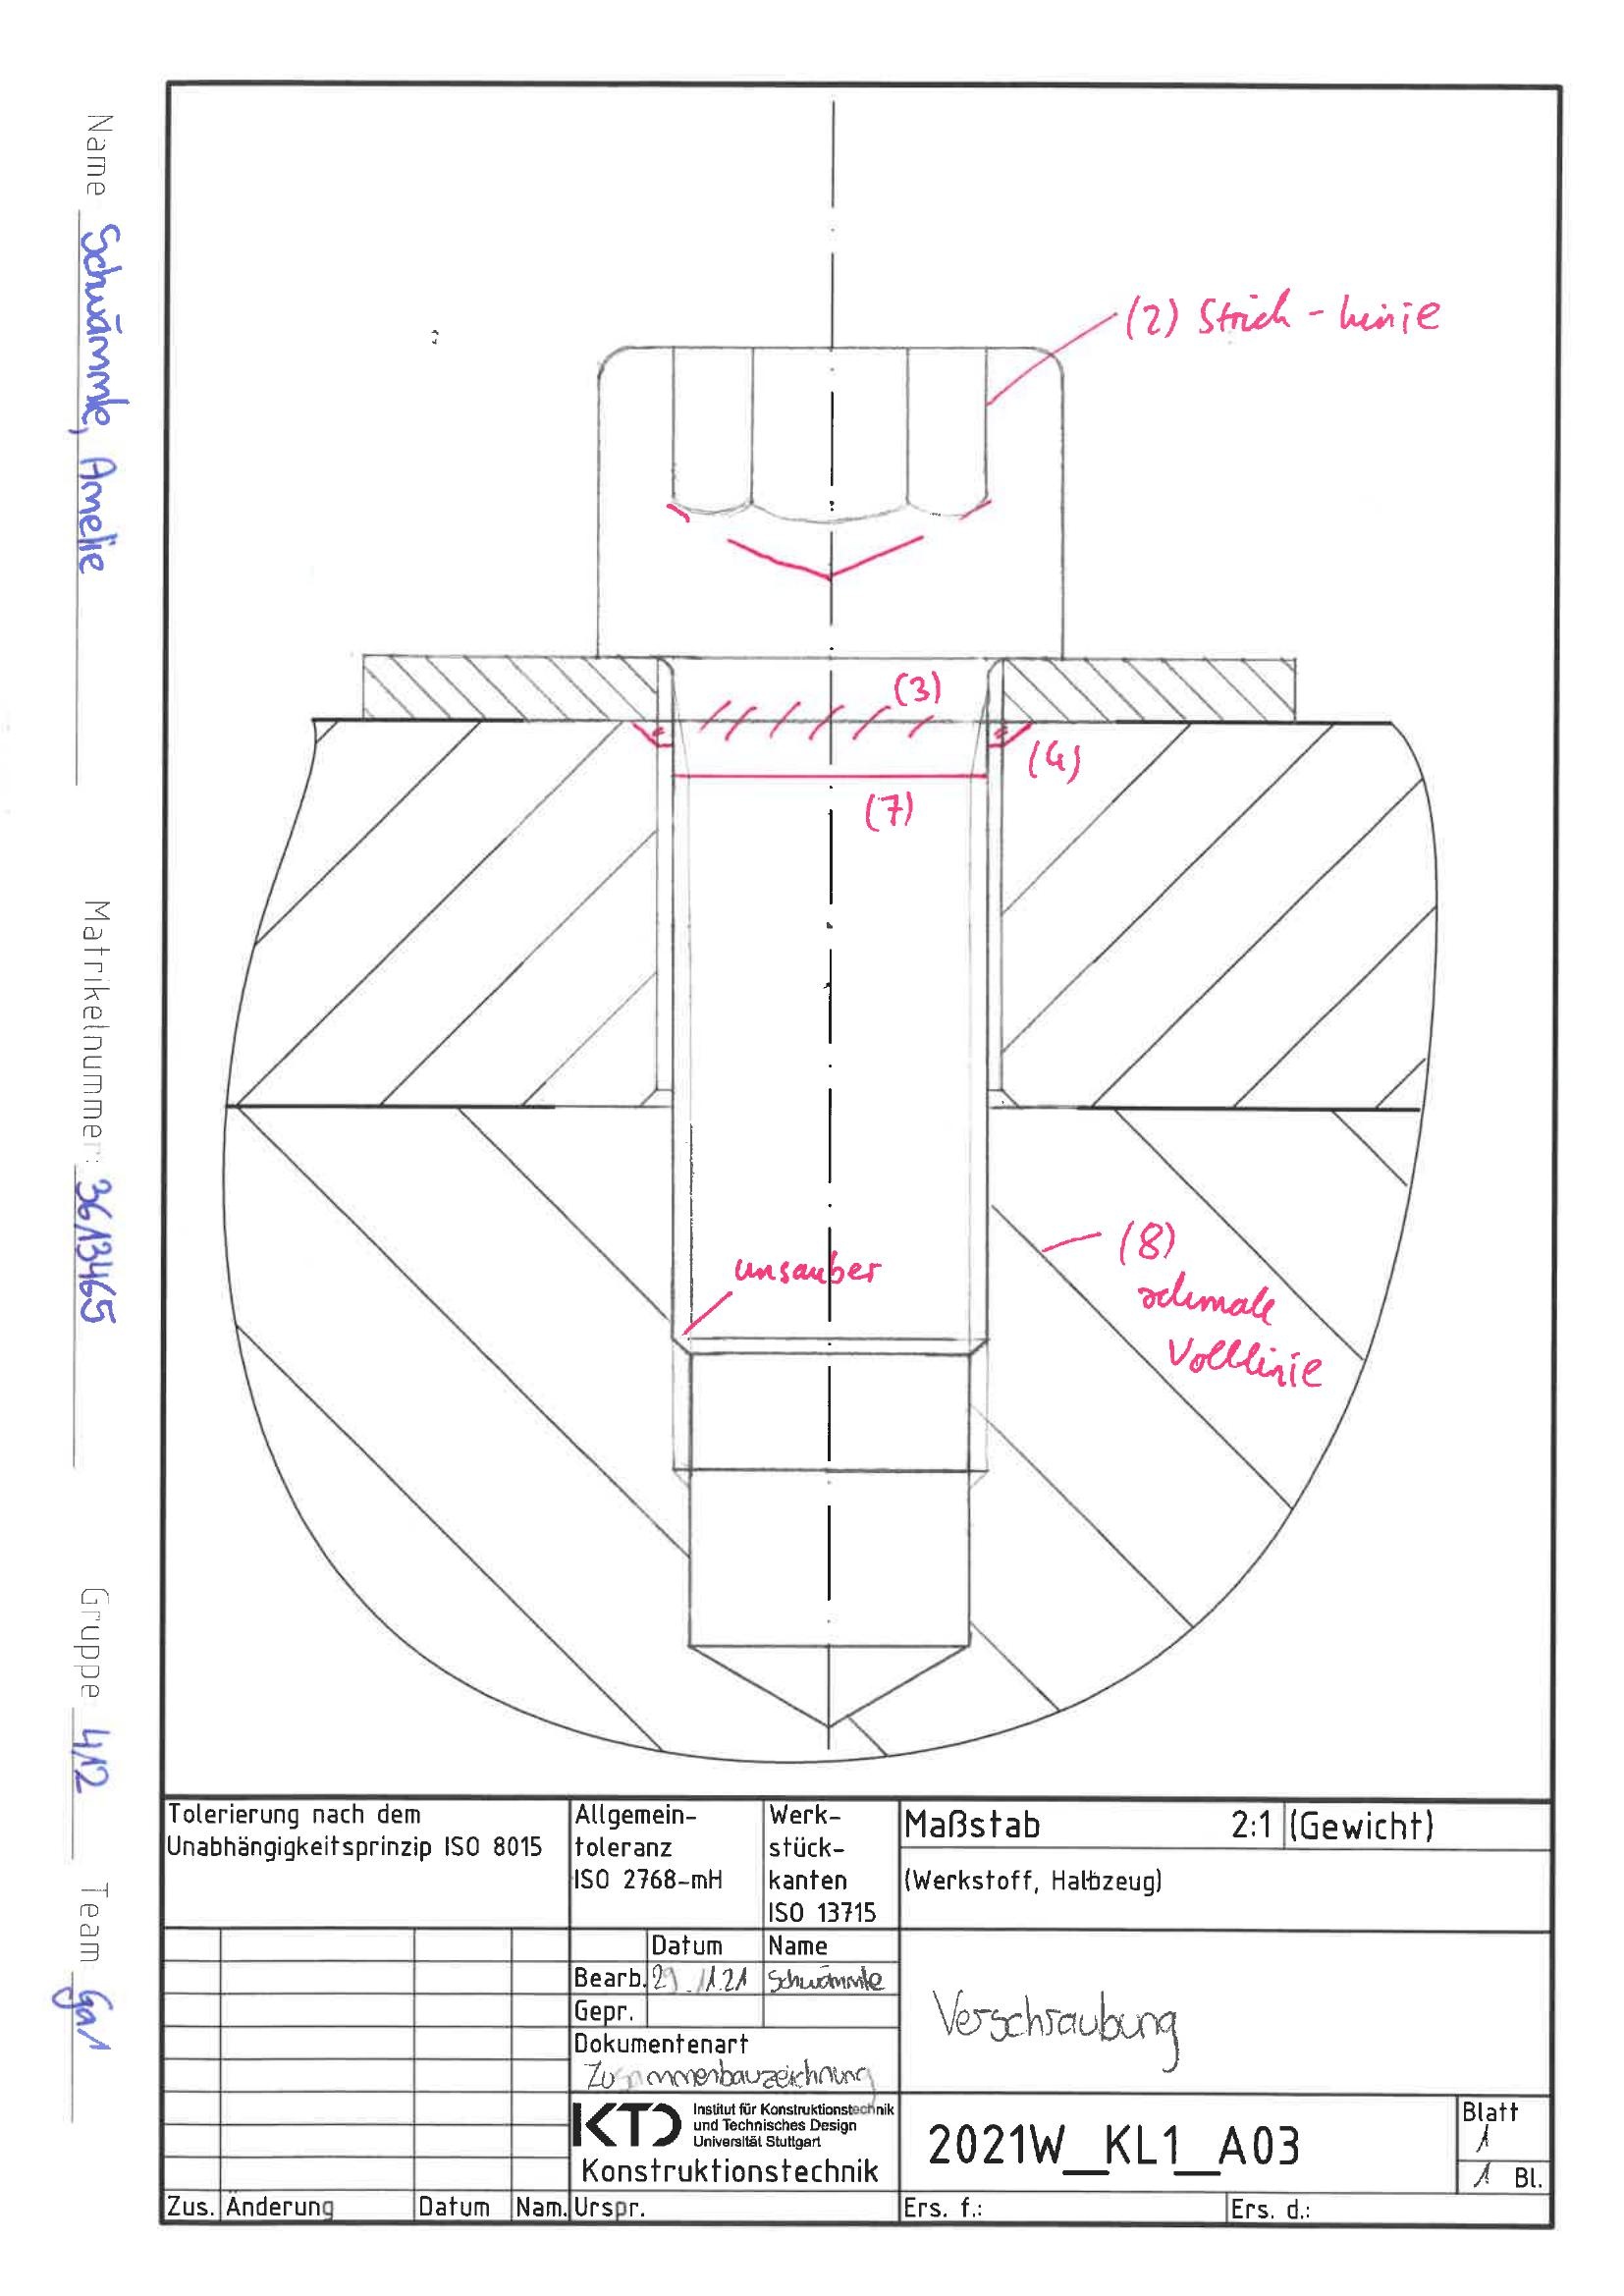 Name Schwämmle, Amelie
Matrikelnummer: 3613465
Gruppe 4/12 Team Ga1
(2) Strich-Linie
(3)
(4)
(7)
unsauber
(8)
schmale
Volllinie
Tolerierung nach dem
Unabhängigkeitsprinzip ISO 8015
Allgemein-
toleranz
ISO 2768-mH
Werk-
stück-
kanten
ISO 13715
Maßstab 2:1 (Gewicht)
(Werkstoff, Halbzeug)
Datum Name
Bearb. 29.11.21 Schwämmle
Gepr.
Dokumentenart
Zusammenbauzeichnung
Verschraubung
KTD Institut für Konstruktionstechnik
und Technisches Design
Universität Stuttgart
Konstruktionstechnik
2021W_KL1_A03
Blatt
1
1 Bl.
Zus. Änderung Datum Nam. Urspr. Ers. f.: Ers. d.: